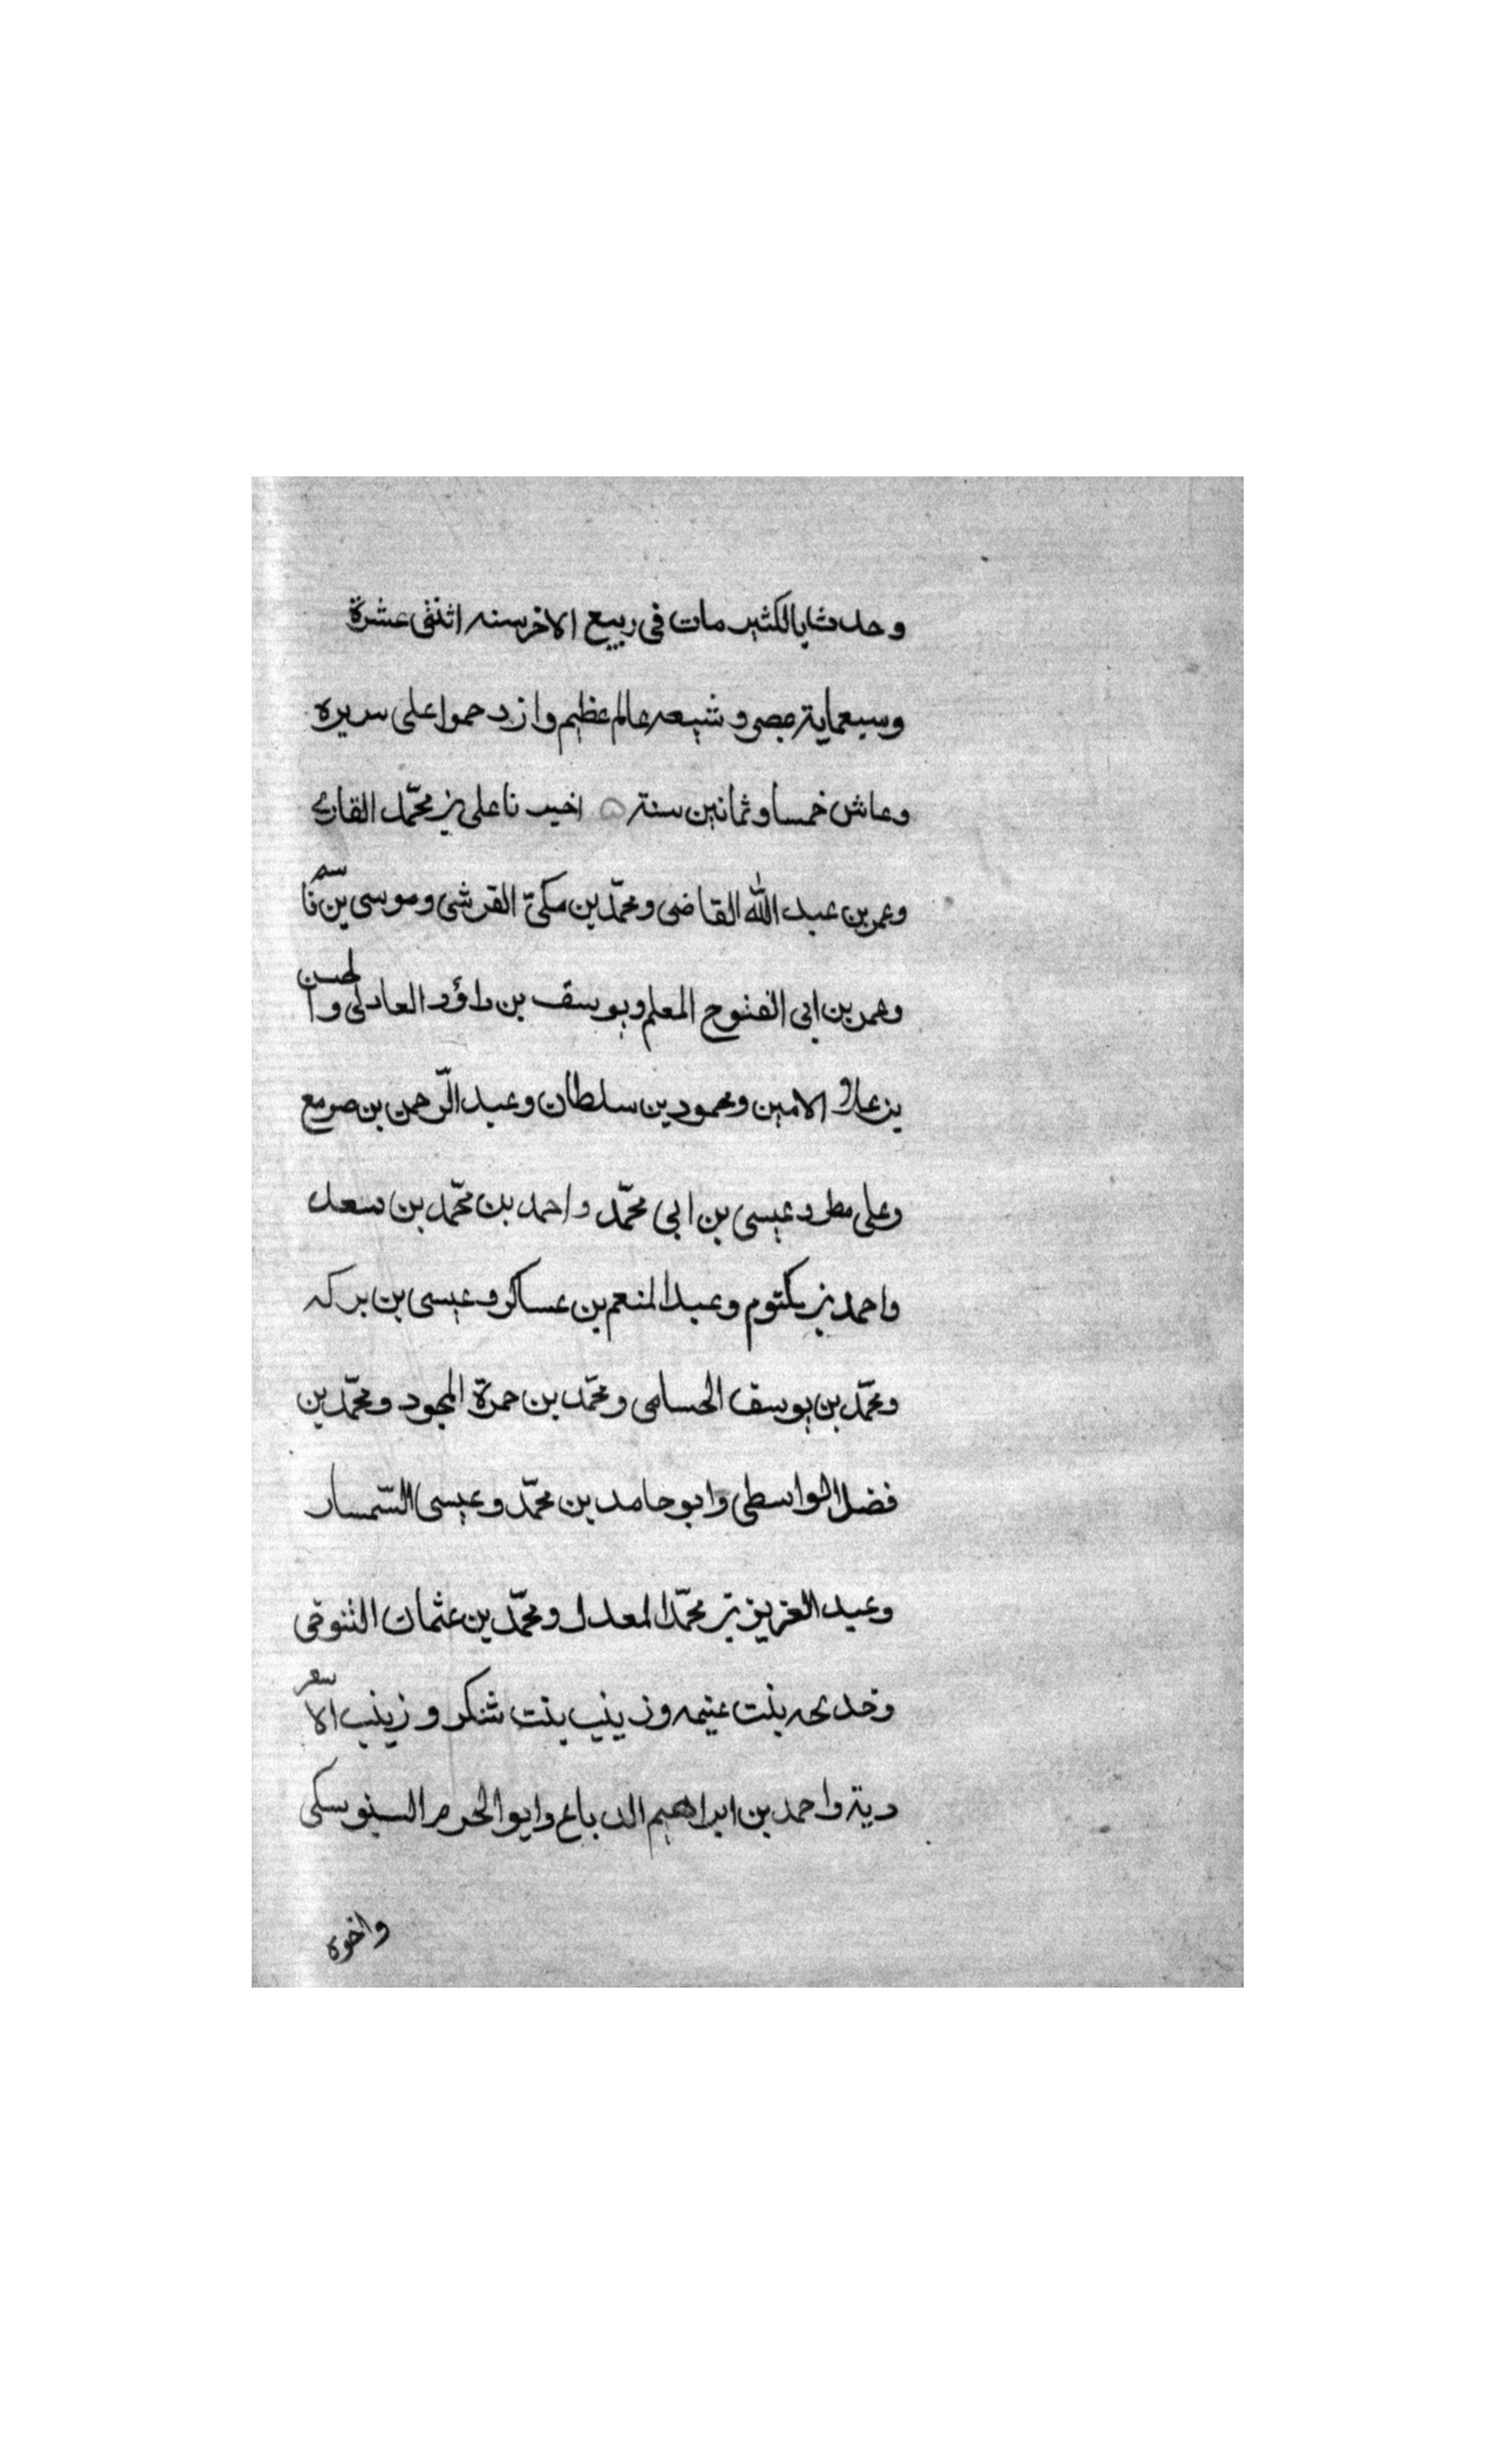 وحدثنا بالكثير مات فى ربيع الاخر سنه اثنثى عشرة
وسبعماية بمصر وشيعه عالم عظيم وازدحموا على سريره
وعاش خمسا وثمانين سنة اخبرنا على بن محمّد القارى
وعمر بن عبد الله القاضى ومحمّد بن مكىّ القرشى وموسى بن قاسم
وعمر بن ابى الفتوح المعلم ويوسف بن داؤد العادلى والحسن
بن على الامين ومحمود بن سلطان وعبد الرّحمن بن صومع
وعلى مطر وعيسى بن ابى محمّد واحمد بن محمّد بن سعد
واحمد بن مكتوم وعبد المنعم بن عساكر وعيسى بن بركه
ومحمّد بن يوسف الحسامى ومحمّد بن حمزة المجود ومحمّد بن
فضل الواسطى وابو حامد بن محمّد وعيسى السّمسار
وعبد العزيز بن محمّد المعدل ومحمّد بن عثمان التنوخى
وخديجه بنت غنيمه وزينب بنت شكر وزينب الاسعر
دية واحمد بن ابراهيم الدباغ وابو الحرم
واخوه